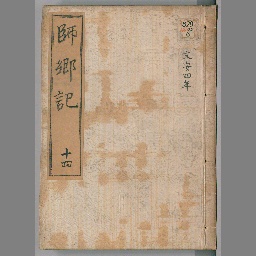 師郷記
十四
文安四年